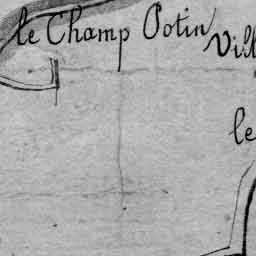 le Champ Potin
Vill
le